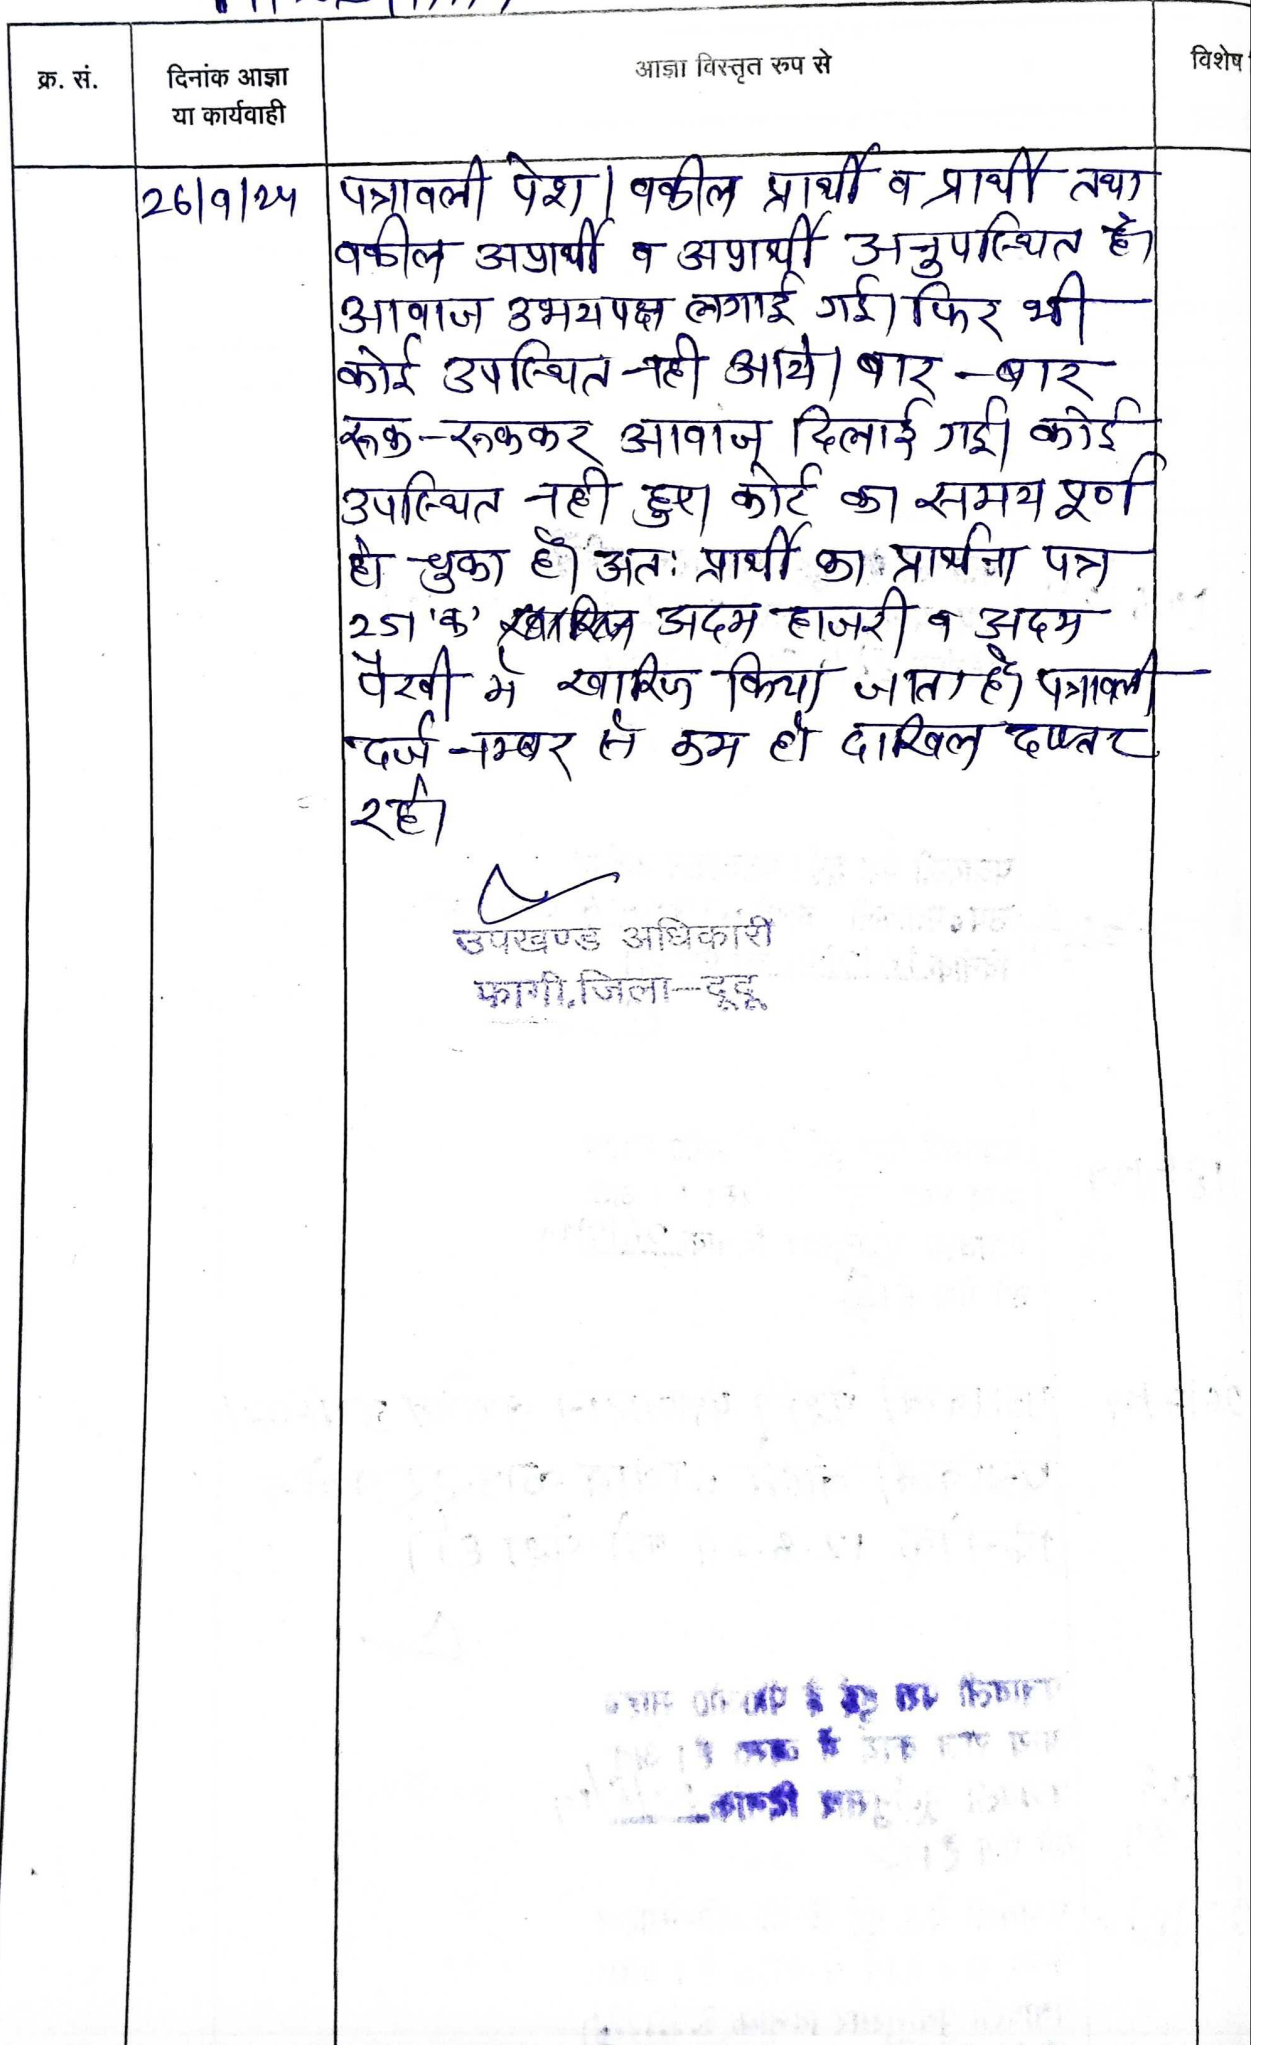 क्र. सं.
दिनांक आज्ञा
या कार्यवाही
आज्ञा विस्तृत रुप से
विशेष
26/9/24
पत्रावली पेश। वकील प्रार्थी व प्रार्थी तथा
वकील अप्रार्थी व अप्रार्थी अनुपस्थित है।
आवाज उभयपक्ष लगाई गई। फिर भी
कोई उपस्थित नही आये। बार-बार
रूक-रूककर आवाज दिलाई गई। कोई
उपस्थित नही हुए। कोर्ट का समय पूर्ण
हो चुका है। अतः प्रार्थी का प्रार्थना पत्र
251 'क' अदम हाजरी व अदम
पैरवी मे खारिज किया जाता है। पत्रावली
दर्ज नम्बर से कम हो दाखिल दफ्तर
रहे।
उपखण्ड अधिकारी
फागी, जिला-दूदू